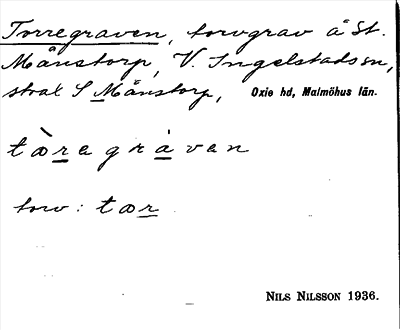 Torregraven, torvgrav å St.
Månstorp, V. Ingelstads sn,
strax S Månstorp, Oxie hd, Malmöhus län.
tæ̀ragrávan
torv: tær
NILS NILSSON 1936.